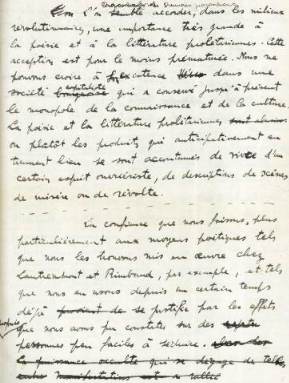 l'on semble accorder, dans les milieux
révolutionnaires, une importance très grande à
la poésie et à la littérature prolétariennes. Cette
acception est pour le moins prématurée. Nous ne
pouvons croire à l'existence dans une
société capitaliste qui a conservé jusqu'à présent
le monopole de la connaissance et de la culture.
La poésie et la littérature prolétariennes
ou plutôt les produits qui anticipativement en
tiennent lieu se sont accoutumés de vivre d'un
certain esprit ouvriériste, de descriptions de scènes
de misère ou de révolte.
La confiance que nous faisons, plus
particulièrement aux moyens poétiques tels
que nous les trouvons mis en œuvre chez
Lautréamont et Rimbaud, par exemple, et tels
que nous en usons depuis un certain temps
déjà de se justifie par les effets
que nous avons pu constater sur des
personnes peu faciles à séduire.
la puissance occulte qui se dégage de telles
manifestations